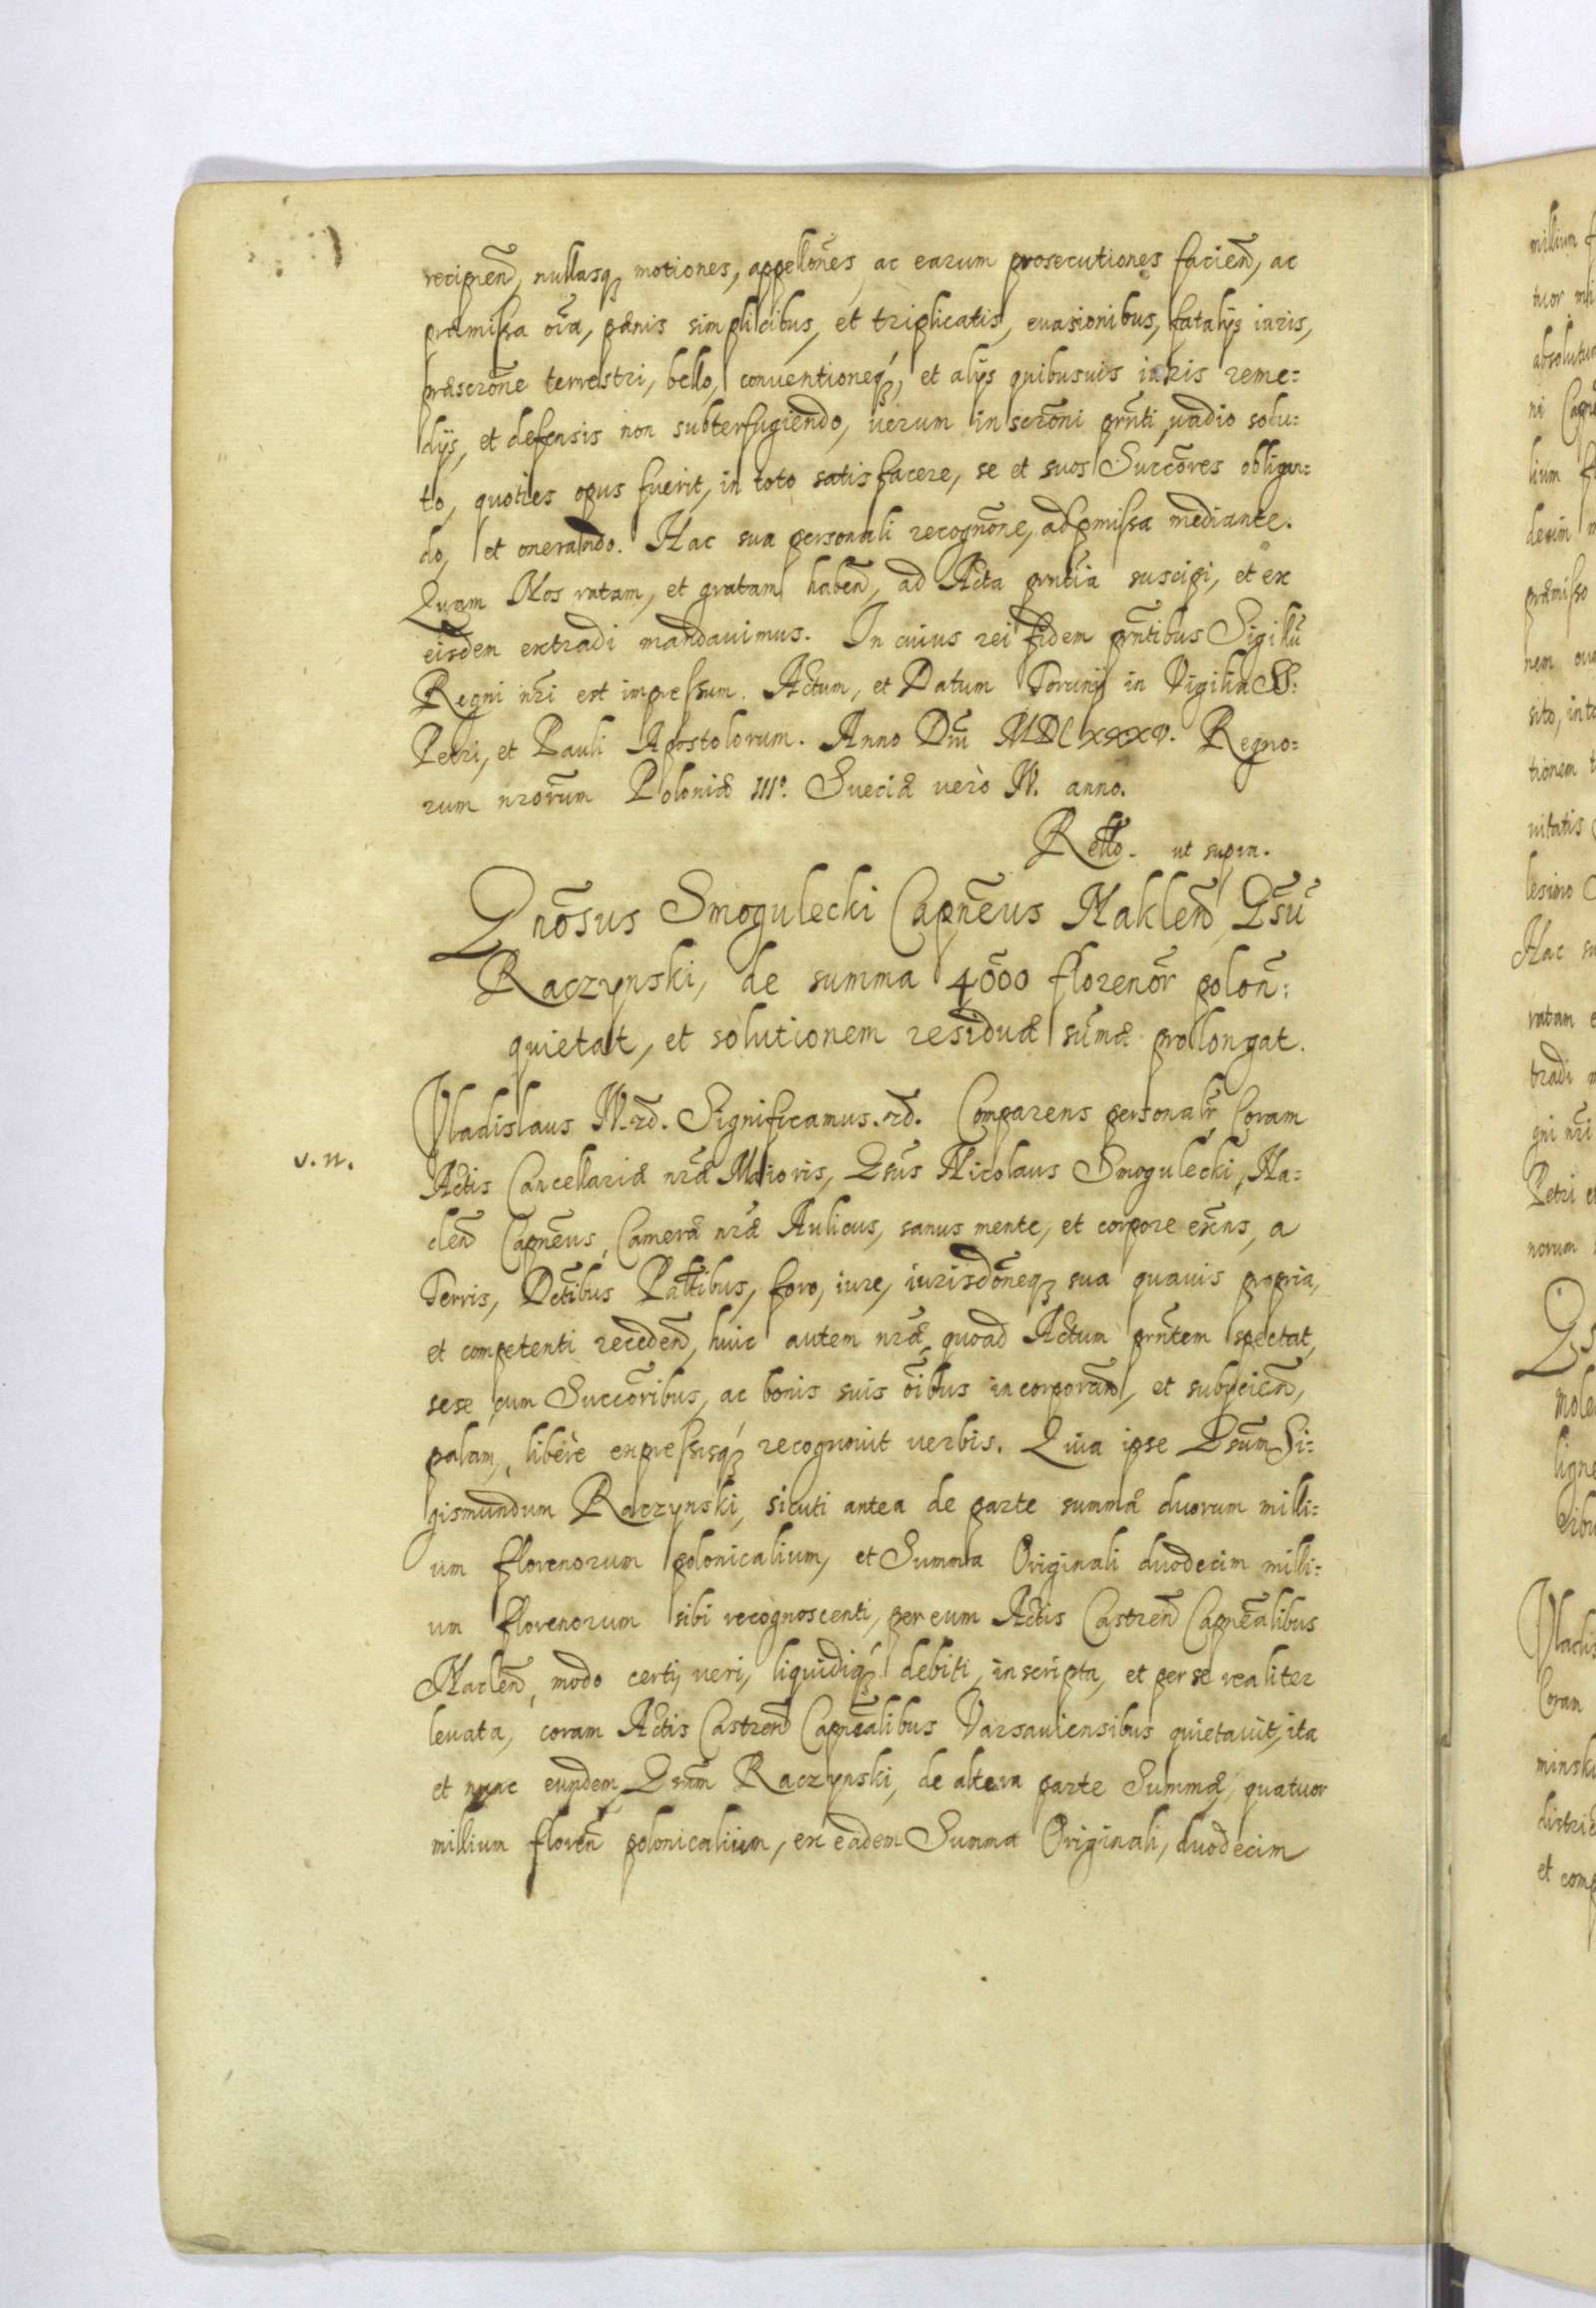 recipieñ, nullasq́ motiones, appellões, ac earum prosecutiones facieñ, ac
præmissa oĩa, pænis simplicibus, et triplicatis, euasionibus, fatalijs iuris,
præscrõne terrestri, bello, conuentioneq́, et alijs quibusuis iuris reme:
dijs, et defensis non subterfugiendo, uerum inscrõni prñti, uadio solu:
to, quoties opus fuerit, in toto satisfacere, se et suos Succõres obligan:
do, et onerando. Hac sua personali recognõne, ad pmissa mediante.
Quam Nos ratam, et gratam habeñ, ad Acta prñtia suscipi, et ex
eisdem extradi mandauimus. In cuius rei fidem prñtibus Sigillũ
Regni nr̃i est impressum. Actum, et Datum Torunij in Vigilia SS:
Petri, et Pauli Apostolorum. Anno Dnĩ MDCXXXV. Regno:
rum nrorũm Poloniæ III°. Sueciæ verò IV. anno.
Rello. ut supra.
Gnõsus Smogulecki Capnẽus Nakleñ, Gsũ
Raczynski, de summa 4000 florenor̃ poloñ:
quietat, et solutionem residuæ sum̃æ prollongat.
Vladislaus IV. rd̃. Significamus. rd̃. Comparens personalr̃ Coram
v. n.
Actis Cancellariæ nr̃æ Maioris, Gsũs Nicolaus Smogulecki, Na:
cleñ Capnẽus, Cameræ nr̃æ Aulicus, sanus mente, et corpore exẽns, a
Terris, Dctĩbus Pattĩbus, foro, iure, iurisdõneq́ sua quauis propria,
et competenti recedeñ, huic autem nr̃æ, quoad Actum prñtem spectat,
sese cum Succõribus, ac bonis suis oĩbus incorporañ, et subijcieñ,
palam, liberè expressisq́ recognouit uerbis. Quia ipse Gsũm Si:
gismundum Raczynski, sicuti antea de parte summæ duorum milli:
um florenorum polonicalium, et Summa Originali duodecim milli:
um florenorum sibi recognoscenti, per eum Actis Castreñ Capnẽalibus
Nacleñ, modo certi, ueri, liquidiq́ debiti, inscripta, et per se realiter
leuata, coram Actis Castreñ Capnẽalibus Varsauiensibus quietauit, ita
et nunc eundem Gsũm Raczynski, de altera parte Summæ, quatuor
millium floreñ polonicalium, ex eadem Summa Originali, duodecim